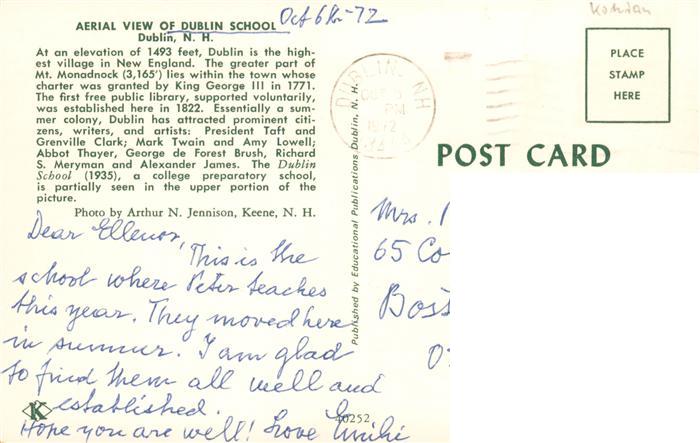 AERIAL VIEW OF DUBLIN SCHOOL
Oct 6th-72
Dublin, N. H.
At an elevation of 1493 feet, Dublin is the high-
est village in New England. The greater part of
Mt. Monadnock (3,165') lies within the town whose
charter was granted by King George III in 1771.
The first free public library, supported voluntarily,
was established here in 1822. Essentially a sum-
mer colony, Dublin has attracted prominent citi-
zens, writers, and artists: President Taft and
Grenville Clark; Mark Twain and Amy Lowell;
Abbot Thayer, George de Forest Brush, Richard
S. Meryman and Alexander James. The Dublin
School (1935), a college preparatory school,
is partially seen in the upper portion of the
picture.
Photo by Arthur N. Jennison, Keene, N. H.
Dear Ellenor,
This is the
school where Peter teaches
this year. They moved here
in summer. I am glad
to find them all well and
established.
Hope you are well! Love
K
40252
Published by Educational Publications, Dublin, N. H.
DUBLIN, NH
PM
1972
PLACE
STAMP
HERE
POST CARD
Mrs.
65 Co
Bos
0